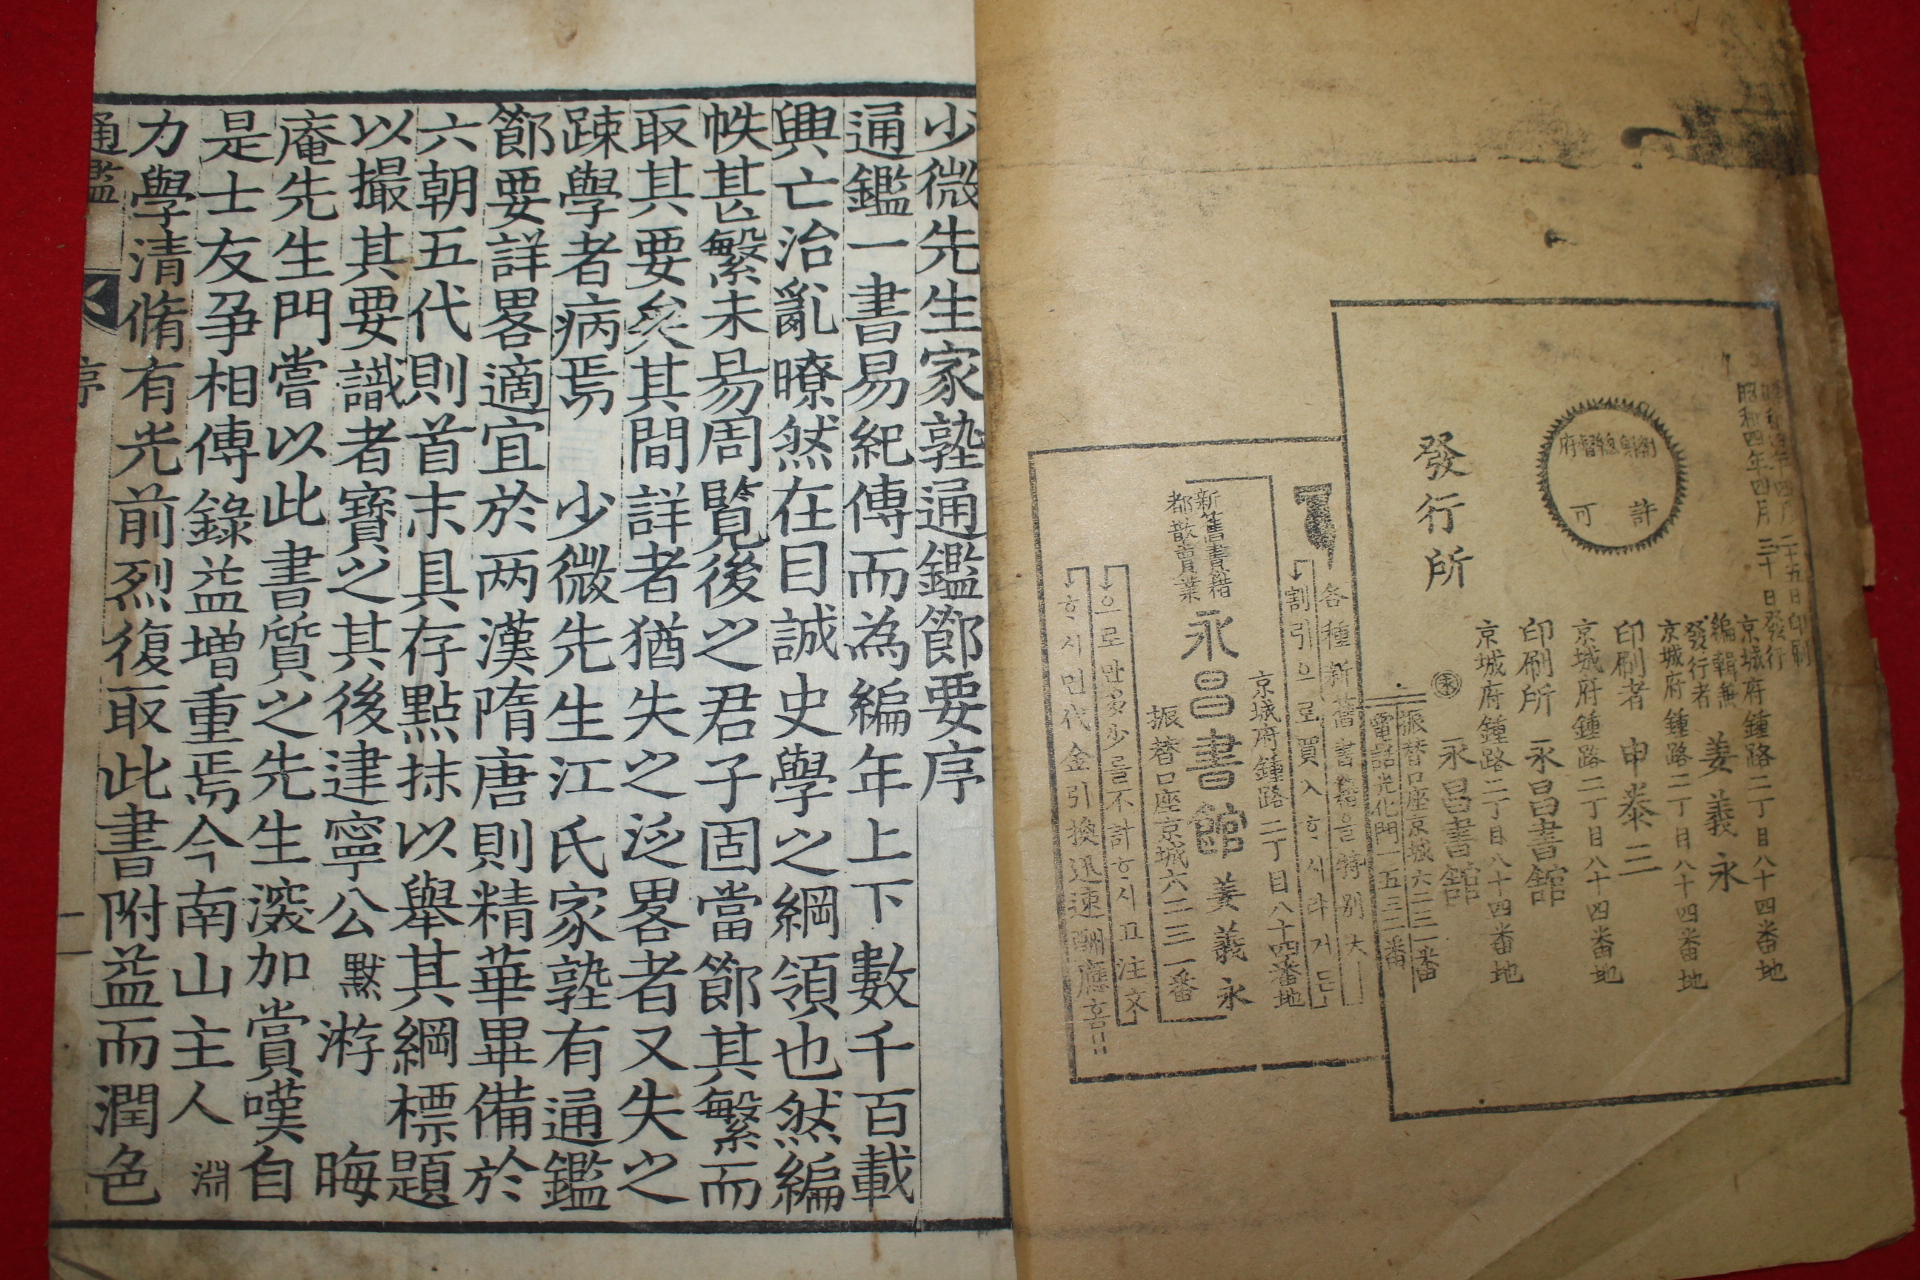 昭和四年四月二十五日印刷
昭和四年四月三十日發行
京城府鍾路二丁目八十四番地
編輯兼
發行者 姜義永
京城府鍾路二丁目八十四番地
印刷者 申泰三
京城府鍾路二丁目八十四番地
印刷所 永昌書館
京城府鍾路二丁目八十四番地
發行所 永昌書館
振替口座京城六二三一番
電話光化門一五三二番
許可
各種新舊書籍을特別大
割引으로買入ᄒᆞ시랴거든
京城府鍾路二丁目八十四番地
新舊書籍
都散賣業
永昌書館 姜義永
振替口座京城六二三一番
으로만多少를不計ᄒᆞ시고注文
ᄒᆞ시면代金引換迅速酬應홈!!
少微先生家塾通鑑節要序
通鑑一書易紀傳而為編年上下數千百載
興亡治亂瞭然在目誠史學之綱領也然編
帙甚繁未易周覽後之君子固當節其繁而
取其要矣其間詳者猶失之泛畧者又失之
踈學者病焉 少微先生江氏家塾有通鑑
節要詳畧適宜於两漢隋唐則精華畢備於
六朝五代則首末具存點抹以舉其綱標題
以撮其要識者寶之其後建寧公默游 晦
庵先生門嘗以此書質之先生深加賞嘆自
是士友爭相傳錄益增重焉今南山主人淵
力學清脩有光前烈復取此書附益而潤色
通鑑 序 一